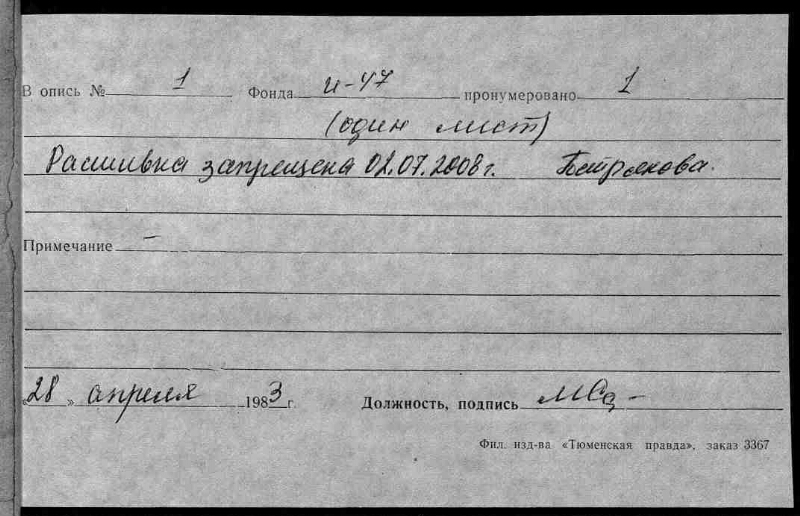 В опись № 1 Фонда И-47 пронумеровано 1
(один лист)
Расшивка запрещена 02.07.2008 г.
Примечание –
"28" апреля 1983 г. Должность, подпись
Фил. изд-ва «Тюменская правда», заказ 3367